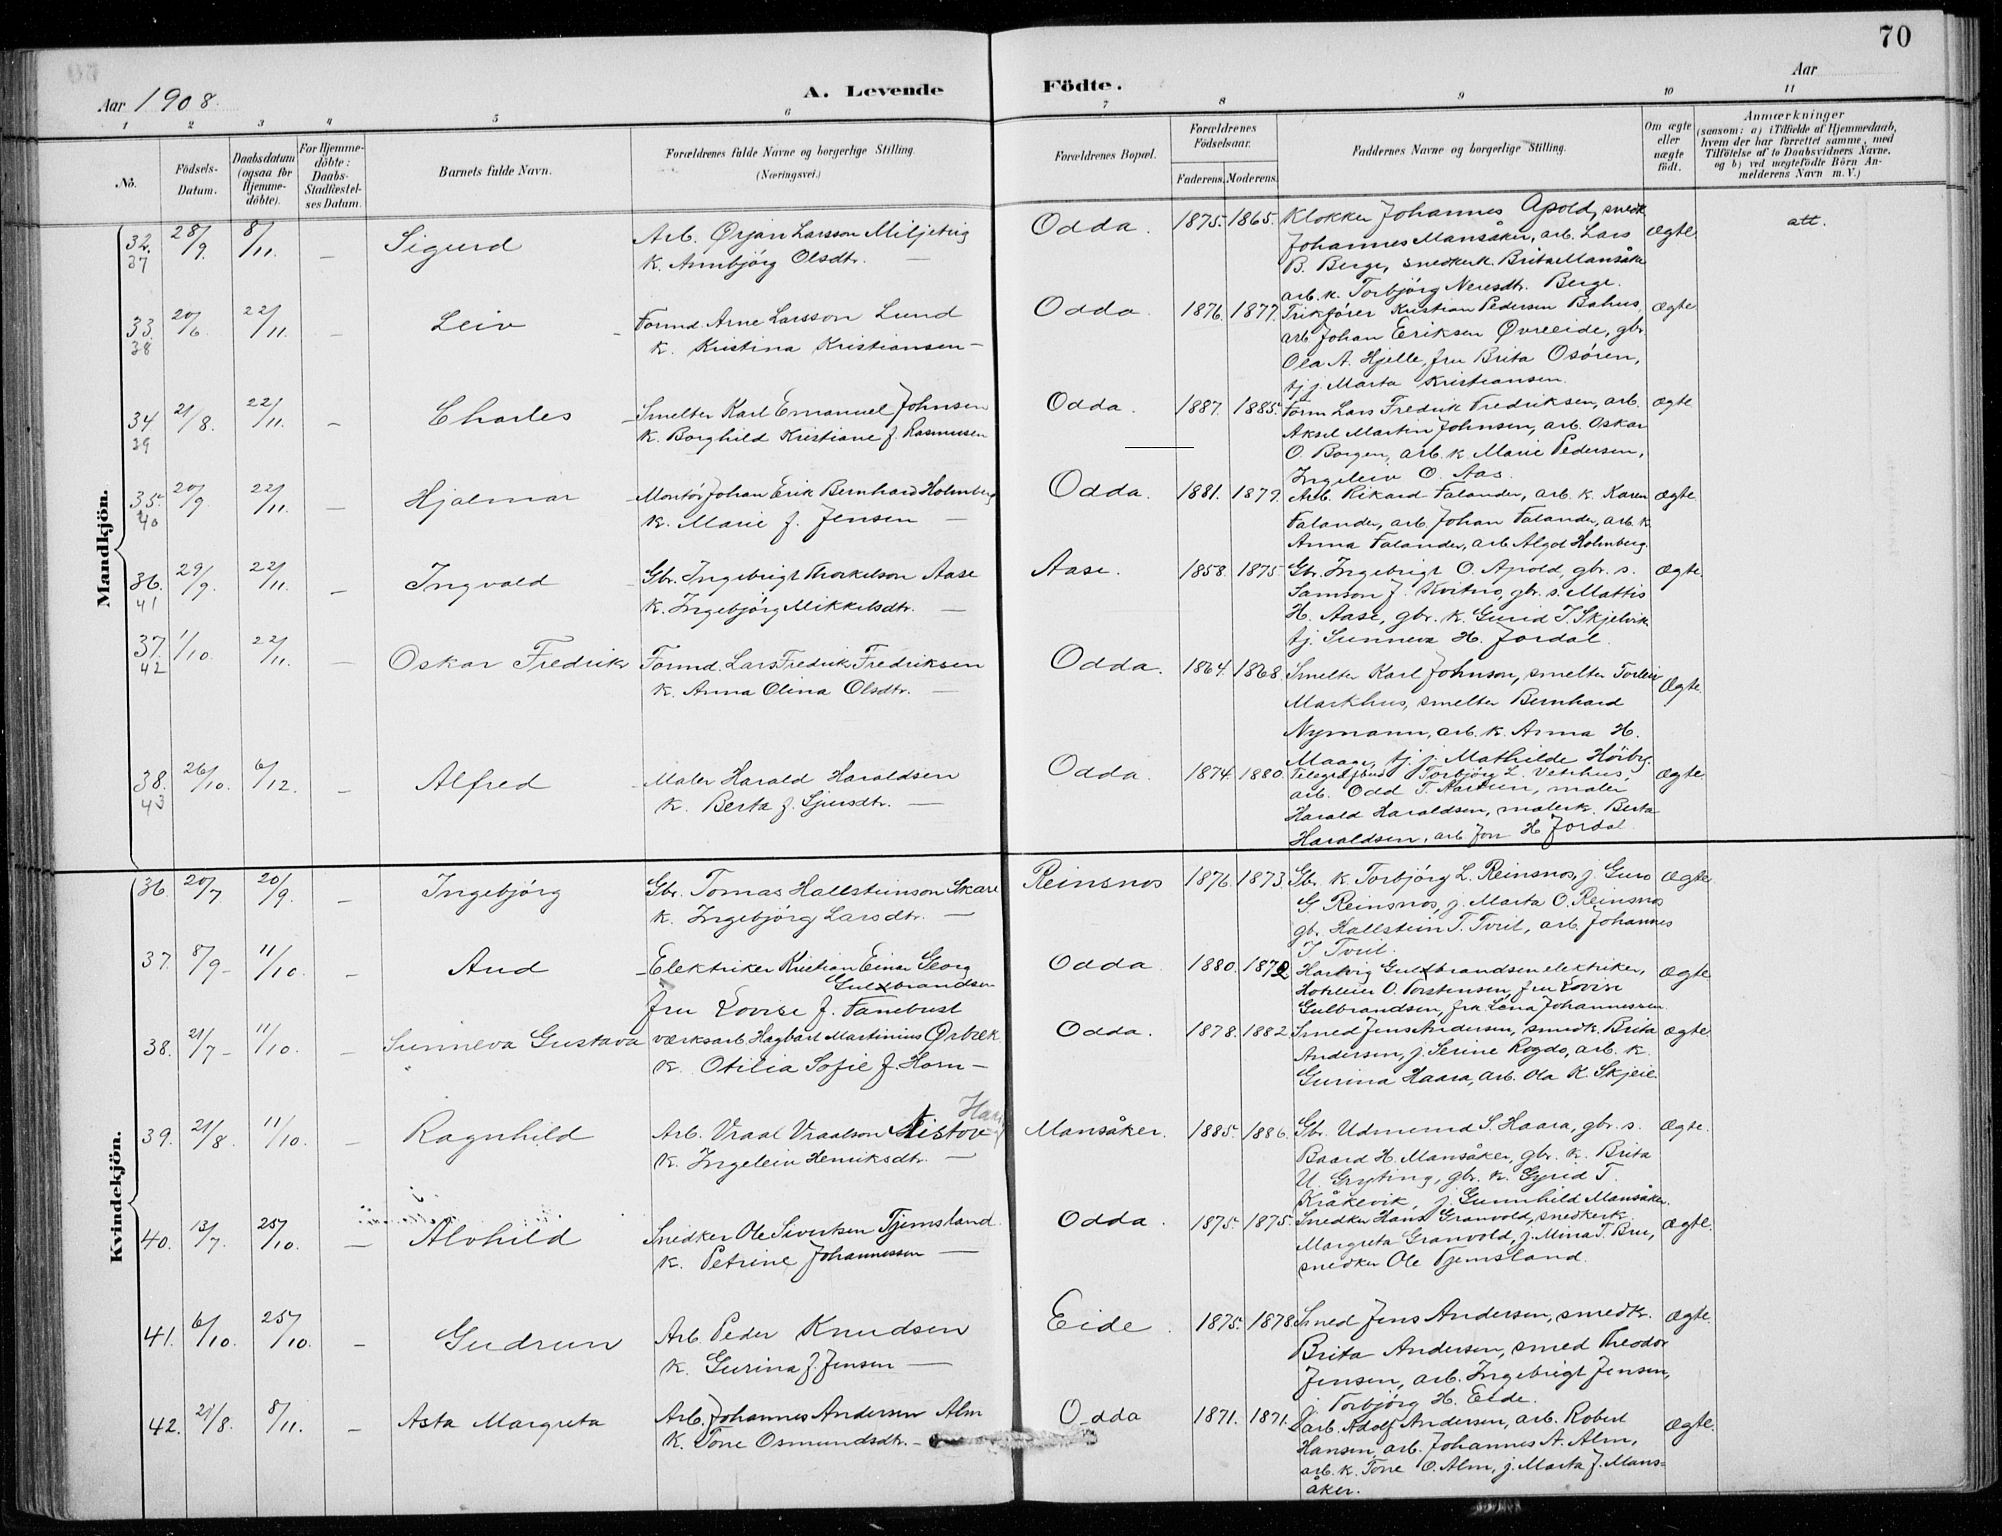 70
Aar 1908.
A. Levende Födte.
Aar
1 2 3 4 5 6 7 8 9 10 11
No.
Födsels-Datum.
Daabsdatum (ogsaa for Hjemme-döbte).
For Hjemme-döbte: Daabs-Stadfæstel-ses Datum.
Barnets fulde Navn.
Forældrenes fulde Navne og borgerlige Stilling.
(Næringsvei.)
Forældrenes Bopæl.
Forældrenes Födselsaar.
Faderens. Moderens.
Faddernes Navne og borgerlige Stilling.
Om ægte eller uægte födt.
Anmærkninger
(saasom: a) i Tilfælde af Hjemmedaab,
hvem der har forrettet samme, med
Tilföielse af to Daabsvidners Navne.
og b) ved uægtefödte Börn An-
melderens Navn m. V.)
Mandkjön.
32. 37 28/9. 8/11. – Sigurd Arb. Ørjan Larsson Miljeteig
k. Annbjörg Olsdtr. –
Odda. 1875. 1865. Klokker Johannes Apold, snedk.
Johannes Mansåker, arb. Lars
B. Berge, snedkerk. Brita Mansåker
arb. k. Torbjörg Neresdt. Berge.
ægte. att.
33. 38 20/6. 22/11. – Leiv Formd. Arne Larsson Lund
k. Kristina Kristiansen –
Odda 1876. 1877. Trikfører Kristian Pedersen Bahus,
arb. Johan Eriksen Øvreeide, gbr.
Ola A. Hjelle, fru Brita Osören,
tj. j. Marta Kristiansen.
ægte
34 39 21/8. 22/11. – Charles Smelter Karl Emanuel Johnsen
k. Borghild Kristiane f. Rasmussen
Odda. 1887. 1885. Form Lars Fredrik Fredriksen, arb.
Aksel Martin Johnsen, arb. Oskar
O. Borgen, arb. k. Marie Pedersen,
Ingeleiv O. Aas.
ægte
35. 40 20/9. 22/11. – Hjalmar Montör Johan Erik Bernhard Holmberg
k. Marie f. Jensen –
Odda. 1881. 1879. Arb. Rikard Falander, arb. k. Karen
Falander, arb. Johan Falander, arb. k.
Anna Falander, arb. Algot Holmberg.
ægte
36. 41 29/9. 22/11. – Ingvald Gbr. Ingebrigt Thorkelson Aase
k. Ingebjörg Mikkelsdtr. –
Aase. 1858. 1875 Gbr. Ingebrigt O. Apold, gbr. s.
Samson J. Kvitno, gbr. s. Mattis
H. Aase, gbr. k. Gurid T. Skjelvik
tj. Sunneva H. Jordal.
ægte.
37. 42 1/10. 22/11. – Oskar Fredrik Formd. Lars Fredrik Fredriksen
k. Anna Olina Olsdtr. –
Odda. 1864. 1868. Smelter Karl Johnson, smelter Torleiv
Markhus, smelter Bernhard
Nymann, arb. k. Anna H.
Maage, tj. j. Mathilde Hörby.
ægte.
38. 43 26/10. 6/12. – Alfred Maler Harald Haraldsen
k. Berta f. Sjursdtr. –
Odda. 1874. 1880. Telegrafbud Torbjörg L. Vetrhus,
arb. Odd T. Aartun, maler
Harald Haraldsen, malerk. Berta
Haraldsen, arb. Jon H Jordal.
ægte
Kvindekjön.
36. 20/7 20/9. – Ingebjörg Gbr. Tomas Hallsteinson Skare
k. Ingebjörg Larsdtr. –
Reinsnos 1876. 1873. Gbr. k. Torbjörg L. Reinsnos, j. Guro
G. Reinsnos, j. Marta O. Reinsnos
gbr. Hallstein T. Tveit, arb. Johannes
T Tveit.
ægte.
37. 8/9 – 11/10. – Aud Elektriker Kristian Einar Georg
Gulbrandsen
fru Lovise f. Fanebust
Odda 1880. 1872 Hartvig Gulbrandsen elektriker,
Hoteleier O. Torstensen, fru Lovise
Gulbrandsen, frk. Lena Johannessen
ægte
38. 21/7 – 11/10. – Sunneva Gustava Værksarb. Hagbart Martinius Ørbæk.
k. Otilia Sofie f Horn –
Odda. 1878. 1882 Smed Jens Andersen, smedk. Brita
Andersen, j. Serine Rogdo, arb. k.
Gurina Haara, arb. Ola K. Skjeie.
ægte.
39. 21/8. 11/10. – Ragnhild Arb. Vraal Vraalson Nistov
k. Ingeleiv Henriksdtr. –
Mansåker. 1885. 1886. Gbr. Udmund S. Haara, gbr. s.
Baard H. Mansåker, gbr. k. Brita
U. Gryting, gbr. k. Gyrid T.
Kråkevik, j. Gunnhild Mansåker.
ægte.
40. 13/7. 25/10. – Alvhild Snedker Ole Sivertsen Tjemsland
k. Petrine Johannessen –
Odda. 1875. 1875. Snedker Hans Granvold, snedkerk.
Margreta Granvold, j. Mina T. Bru,
snedker Ole Tjemsland.
ægte.
41. 6/10. 25/10. – Gudrun Arb. Peder Knudsen
k. Gurina f. Jensen –
Eide. 1875. 1878. Smed Jens Andersen, smedk.
Brita Andersen, smed Theodor
Jensen, arb. Ingebrigt Jensen,
j. Torbjörg H. Eide.
ægte.
42. 21/8. 8/11. – Asta Margreta Arb. Johannes Andersen Alm
k. Tone Osmundsdtr. –
Odda 1871. 1871. arb. Adolf Andersen, arb. Robert
Hansen, arb. Johannes A. Alm,
arb. k. Tone O. Alm, j. Marta J. Mans=
åker.
ægte.